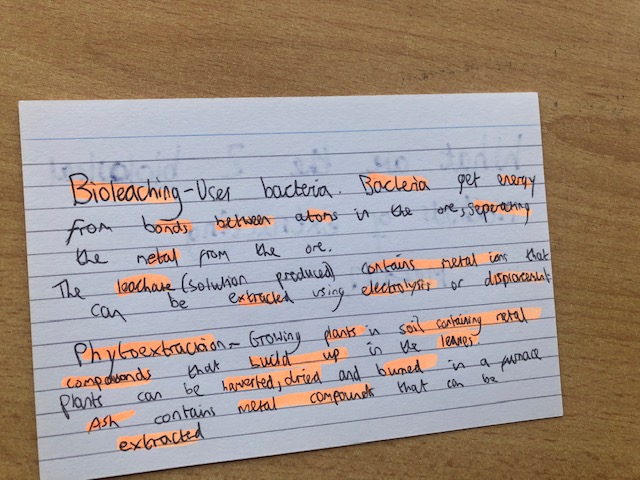 Bioleaching - Uses bacteria. Bacteria get energy
from bonds between atoms in the ore, seperating
the metal from the ore.
The leachate (solution produced) contains metal ions that
can be extracted using electrolysis or displacement
Phytoextraction - Growing plants in soil containing metal
compounds that build up in the leaves
plants can be harvested, dried and burned in a furnace
Ash contains metal compounds that can be
extracted